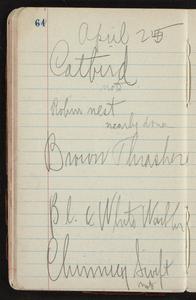 64
April 25
Catbird
not
Robins nest
nearly done
Brown Thrasher
Bl. & White Warbler
Chimney Swift
not